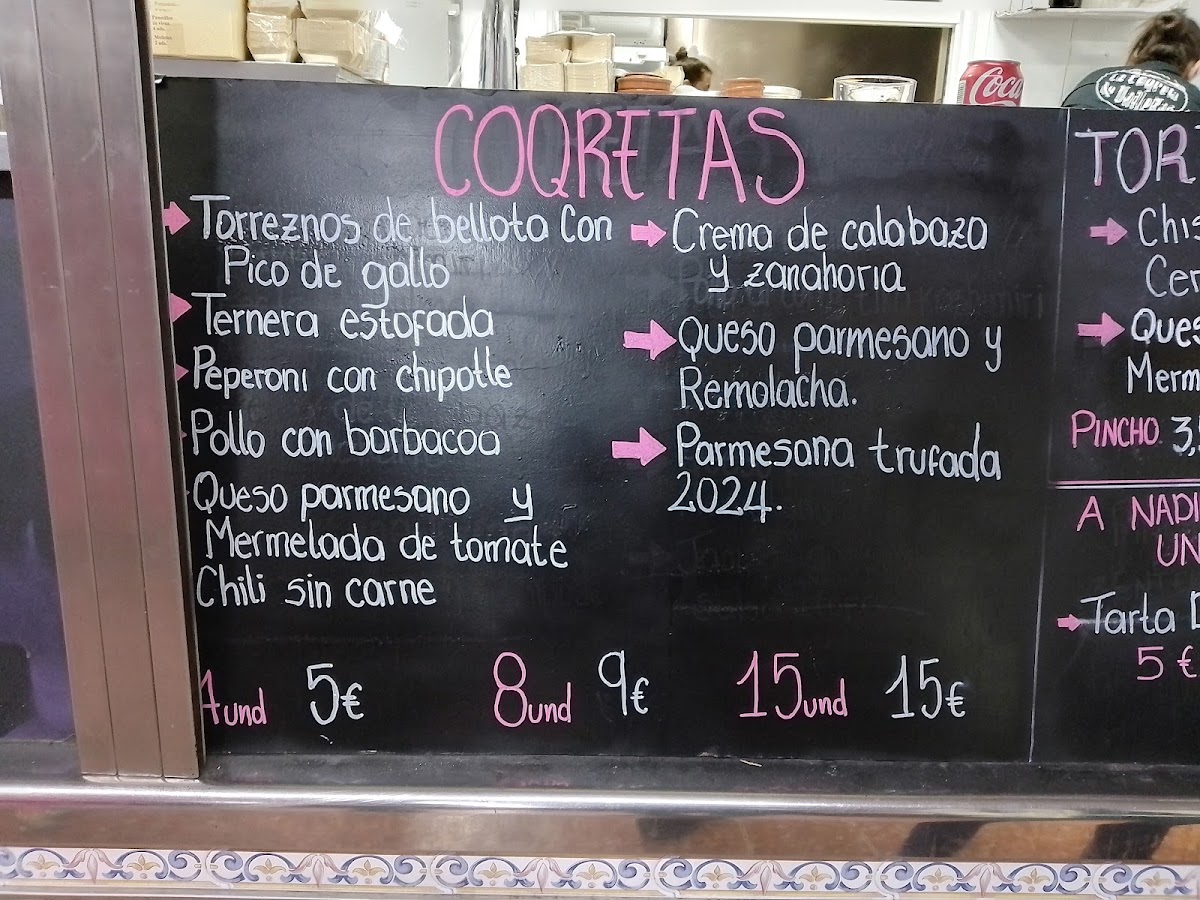 Coca
COQRETAS
Torreznos de bellota Con
Pico de gallo
Ternera estofada
Peperoni con chipotle
Pollo con barbacoa
Queso parmesano y
Mermelada de tomate
Chili sin carne
Crema de calabaza
y zanahoria
Queso parmesano y
Remolacha.
Parmesana trufada
2024.
4und 5€ 8und 9€ 15und 15€
TOR
Chis
Cer
Ques
Merm
PINCHO 3,
A NADI
UN
Tarta
5 €